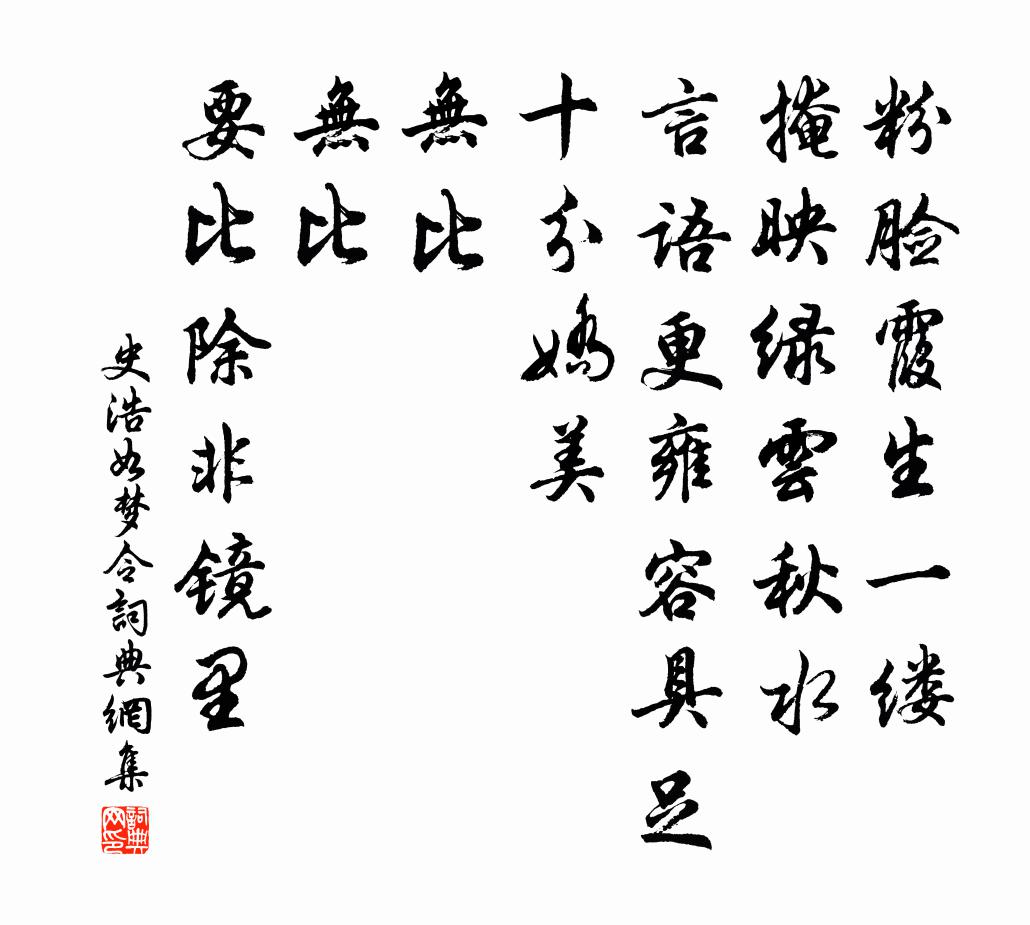 粉脸霞生一缕
掩映绿雲秋水
言語更雍容具足
十分嬌美
無比
無比
要比除非镜里
史浩如梦令詞典網集
詞典网印